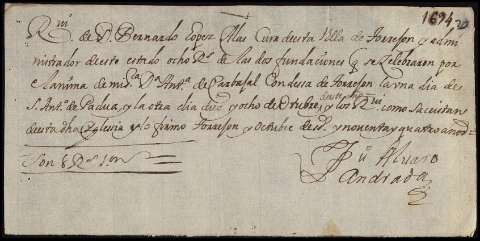 1694
Rui. de D. Bernardo Lopez Cura desta Villa de Torrejon y admi
nistrador deste estado ocho Rs. de las dos fundaciones q se celebraron por
el anima de mi sa. Da. Anta. de Carbajal Condesa de Torrejon la vna dia de
S. Anto. de Padua, y la otra dia diez y ocho de Otubre, y los Rui como sacristan
desta dha Yglesia y lo firmo Torrejon y Octubre de y noventa y quatro anos
Son 8 Rs. Von
Ju Alvaro
Andrada